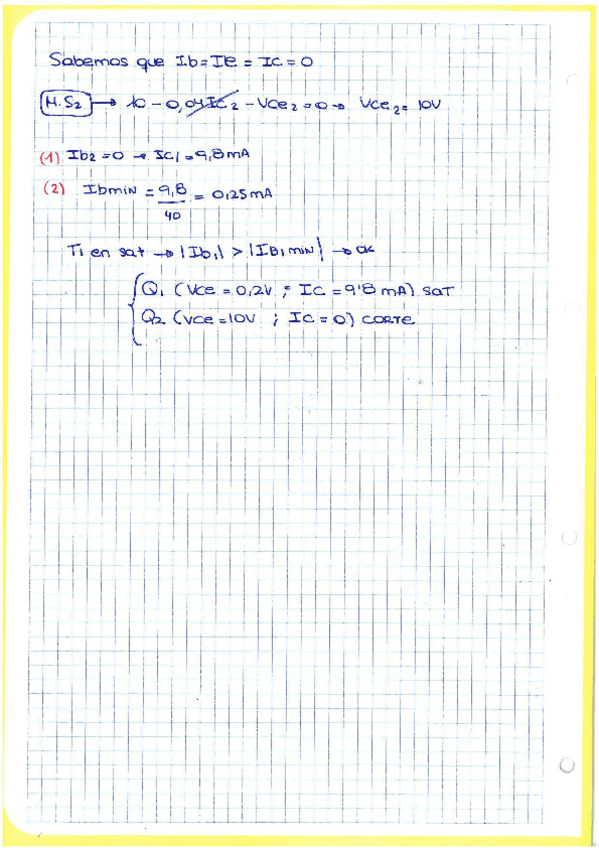 Sabemos que Ib = Ie = Ic = 0
M.S2 → 10 - 0,04Ic2 - Vce2 = 0 → Vce2 = 10V
(1) Ib2 = 0 → Ic1 = 9,8mA
(2) Ibmin = 9,8/40 = 0,25mA
T1 en sat → |Ib1| > |IB1min| → OK
{ Q1 (Vce = 0,2V ; Ic = 9'8 mA) sat
Q2 (Vce = 10V ; Ic = 0) CORTE